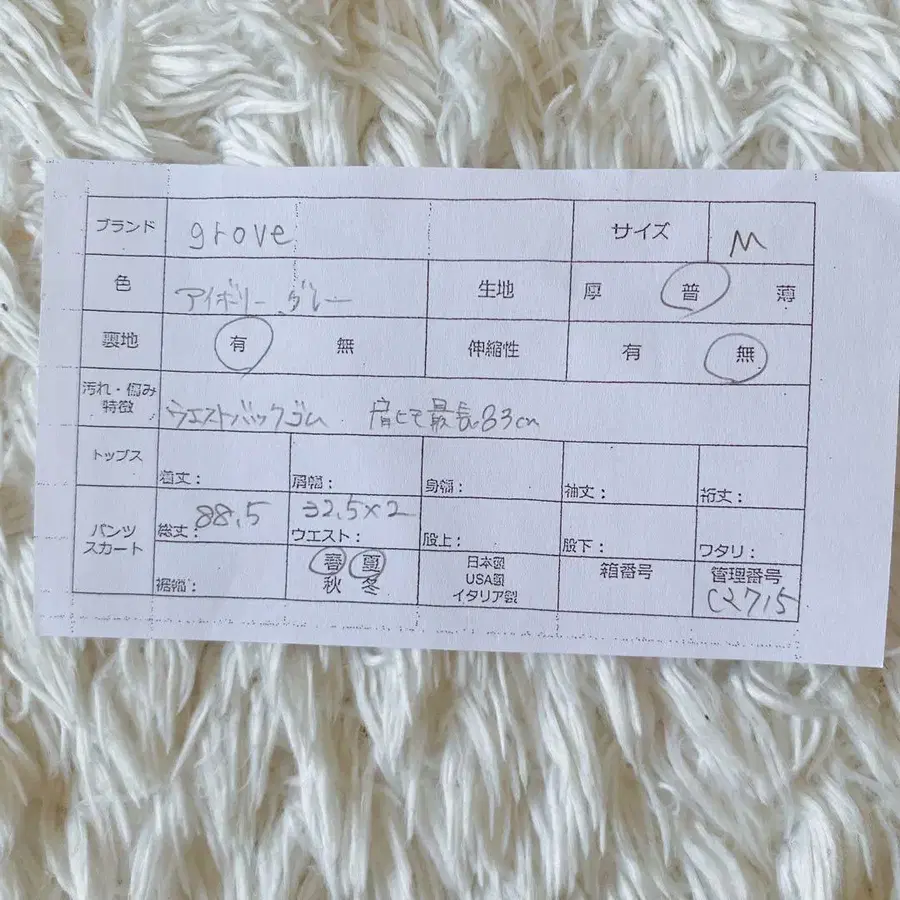 ブランド grove サイズ M
色 アイボリー グレー 生地 厚 普 薄
裏地 有 無 伸縮性 有 無
汚れ・傷み
特徴 ウエストバックゴム 最長83cm
トップス 着丈: 肩幅: 身幅: 袖丈: 裄丈:
パンツ
スカート 総丈: 88.5 ウエスト: 32.5×2 股上: 股下: ワタリ:
裾幅: 春 夏
秋 冬
日本製
USA製
イタリア製
箱番号 管理番号
C2715